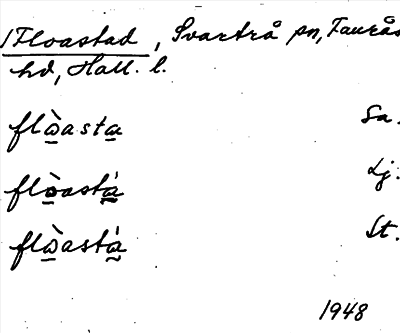 /Floastad, Svartrå sn, Faurås
hd, Hall. l.
flòasta Sa.
flòastá Lj.
flòastá St.
1948